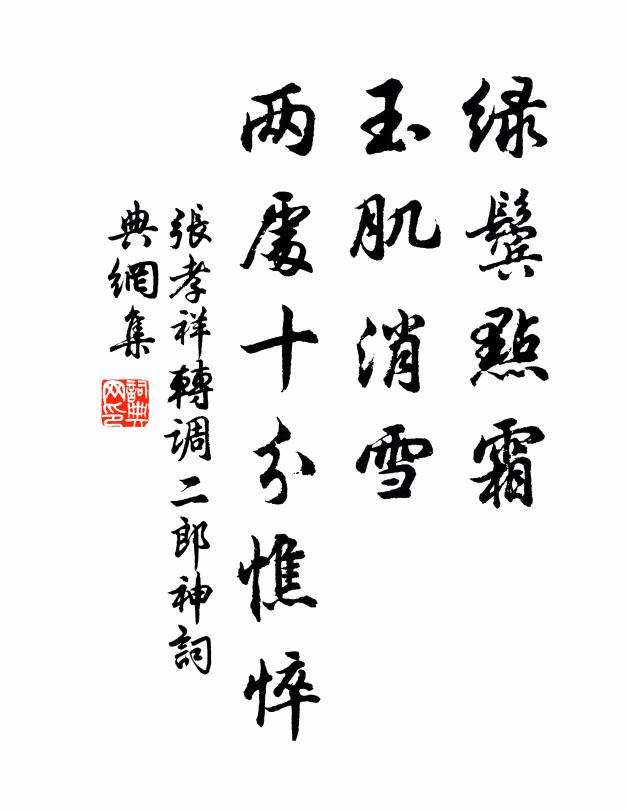 绿鬓點霜
玉肌消雪
两處十分憔悴
張孝祥轉调二郎神詞
典網集
詞典网印